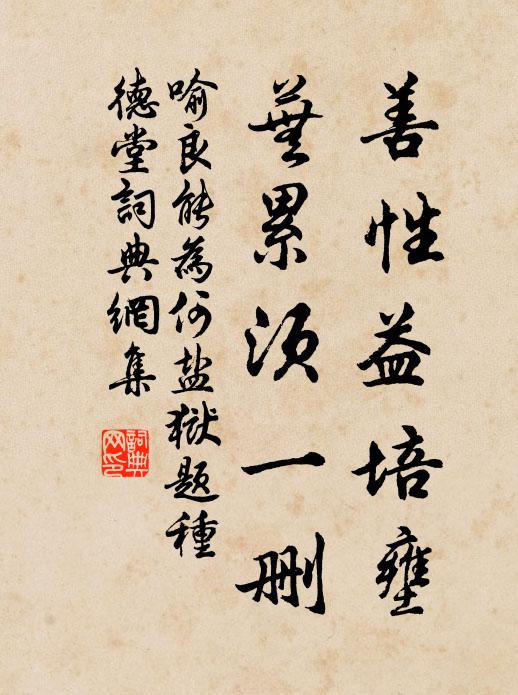 善性益培壅
芜累须一删
喻良能為何盐狱题種
德堂詞典網集
詞典网印